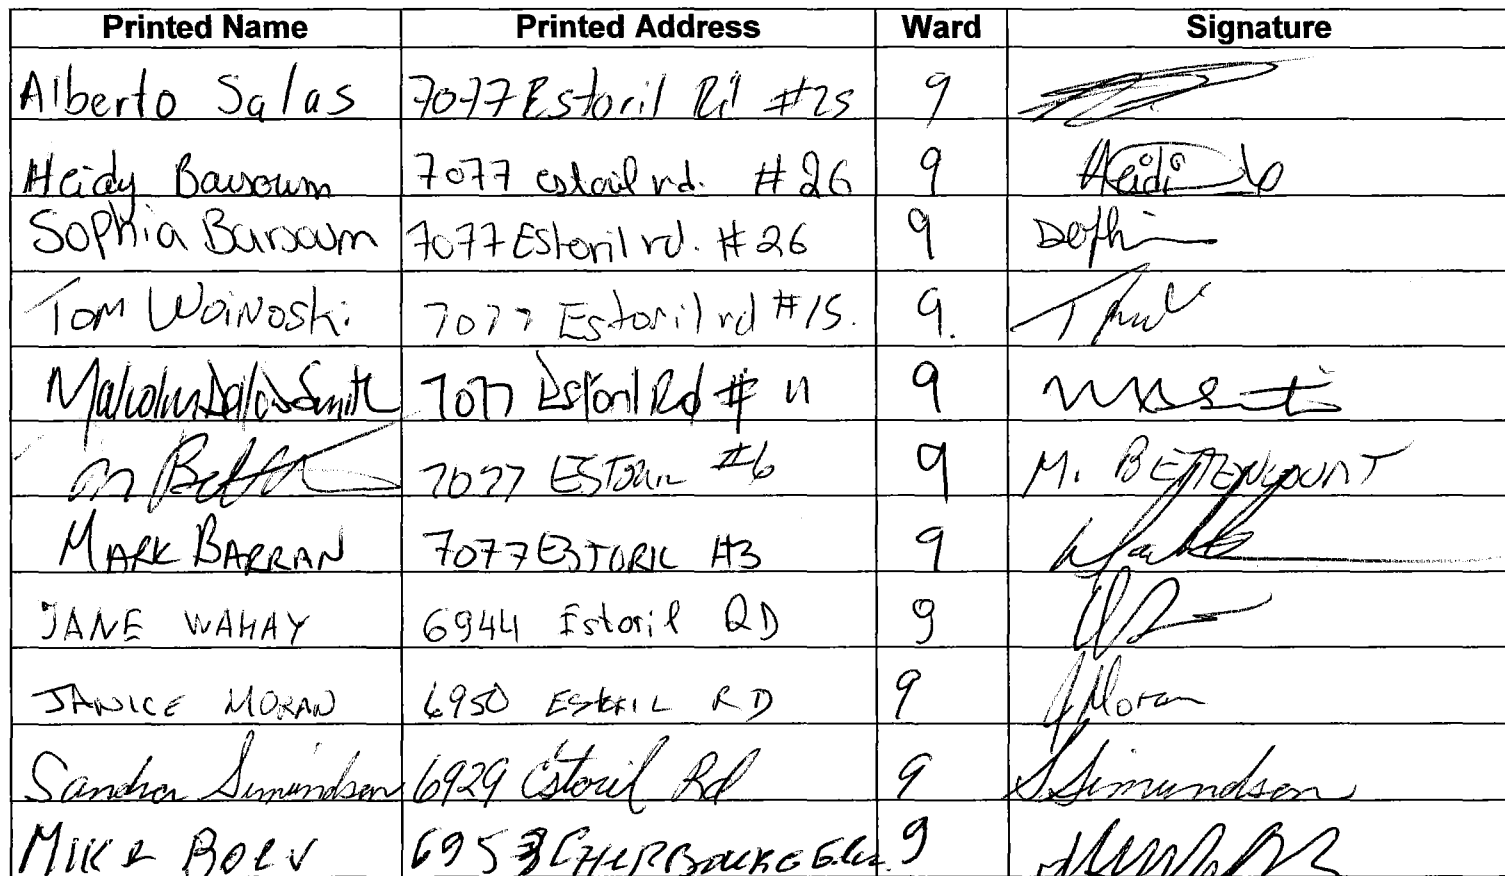 Printed Name Printed Address Ward Signature
Alberto Salas 7077 Estoril Rd #25 9
Heidy Barsoum 7077 estoril rd. #26 9 Heidi
Sophia Barsoum 7077 Estoril rd. #26 9 Sophi
Tom Woinoski 7077 Estoril rd #15. 9.
Malcolm Smith 7077 Estoril Rd # 11 9
7077 ESTORIL #6 9 M. BETTENCOURT
MARK BARRAN 7077 ESTORIL #3 9
JANE WAHAY 6944 Estoril RD 9
JANICE MORAN 6950 ESTORIL RD 9 J Moran
Sandra Simundson 6929 Estoril Rd 9 S Simundson
MIKE BOEV 6953 CHERBOURG 9